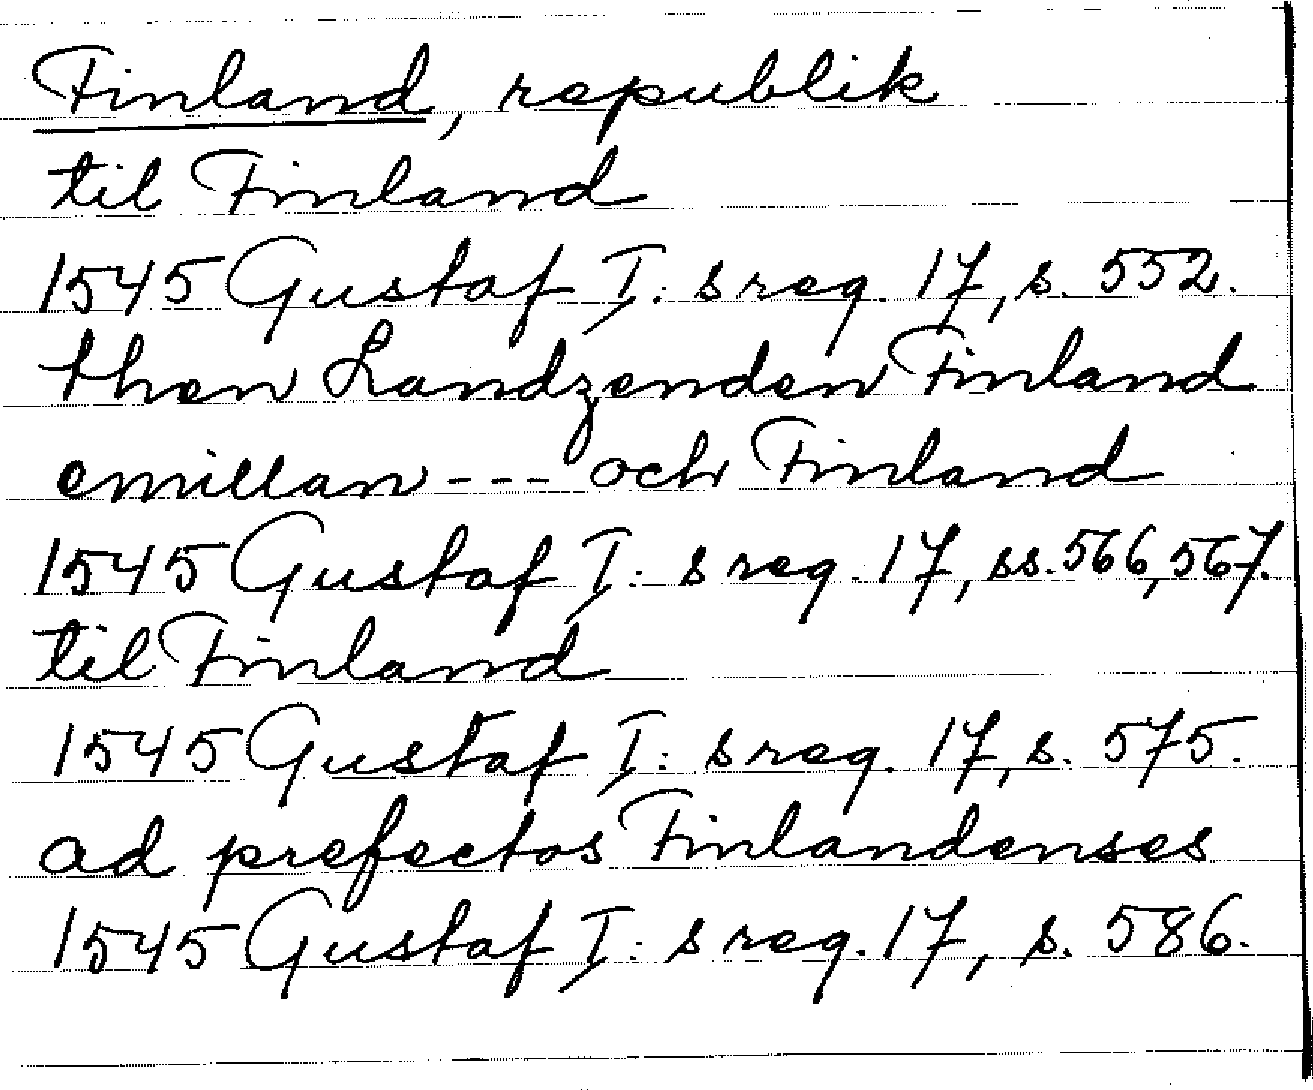 Finland, republik
til Finland
1545 Gustaf I: s reg. 17, s. 552.
then Landzenden Finland
emillan --- och Finland
1545 Gustaf I: s reg. 17, ss. 566, 567.
til Finland
1545 Gustaf I: s reg. 17, s. 575.
ad prefectos Finlandenses
1545 Gustaf I: s reg. 17, s. 586.